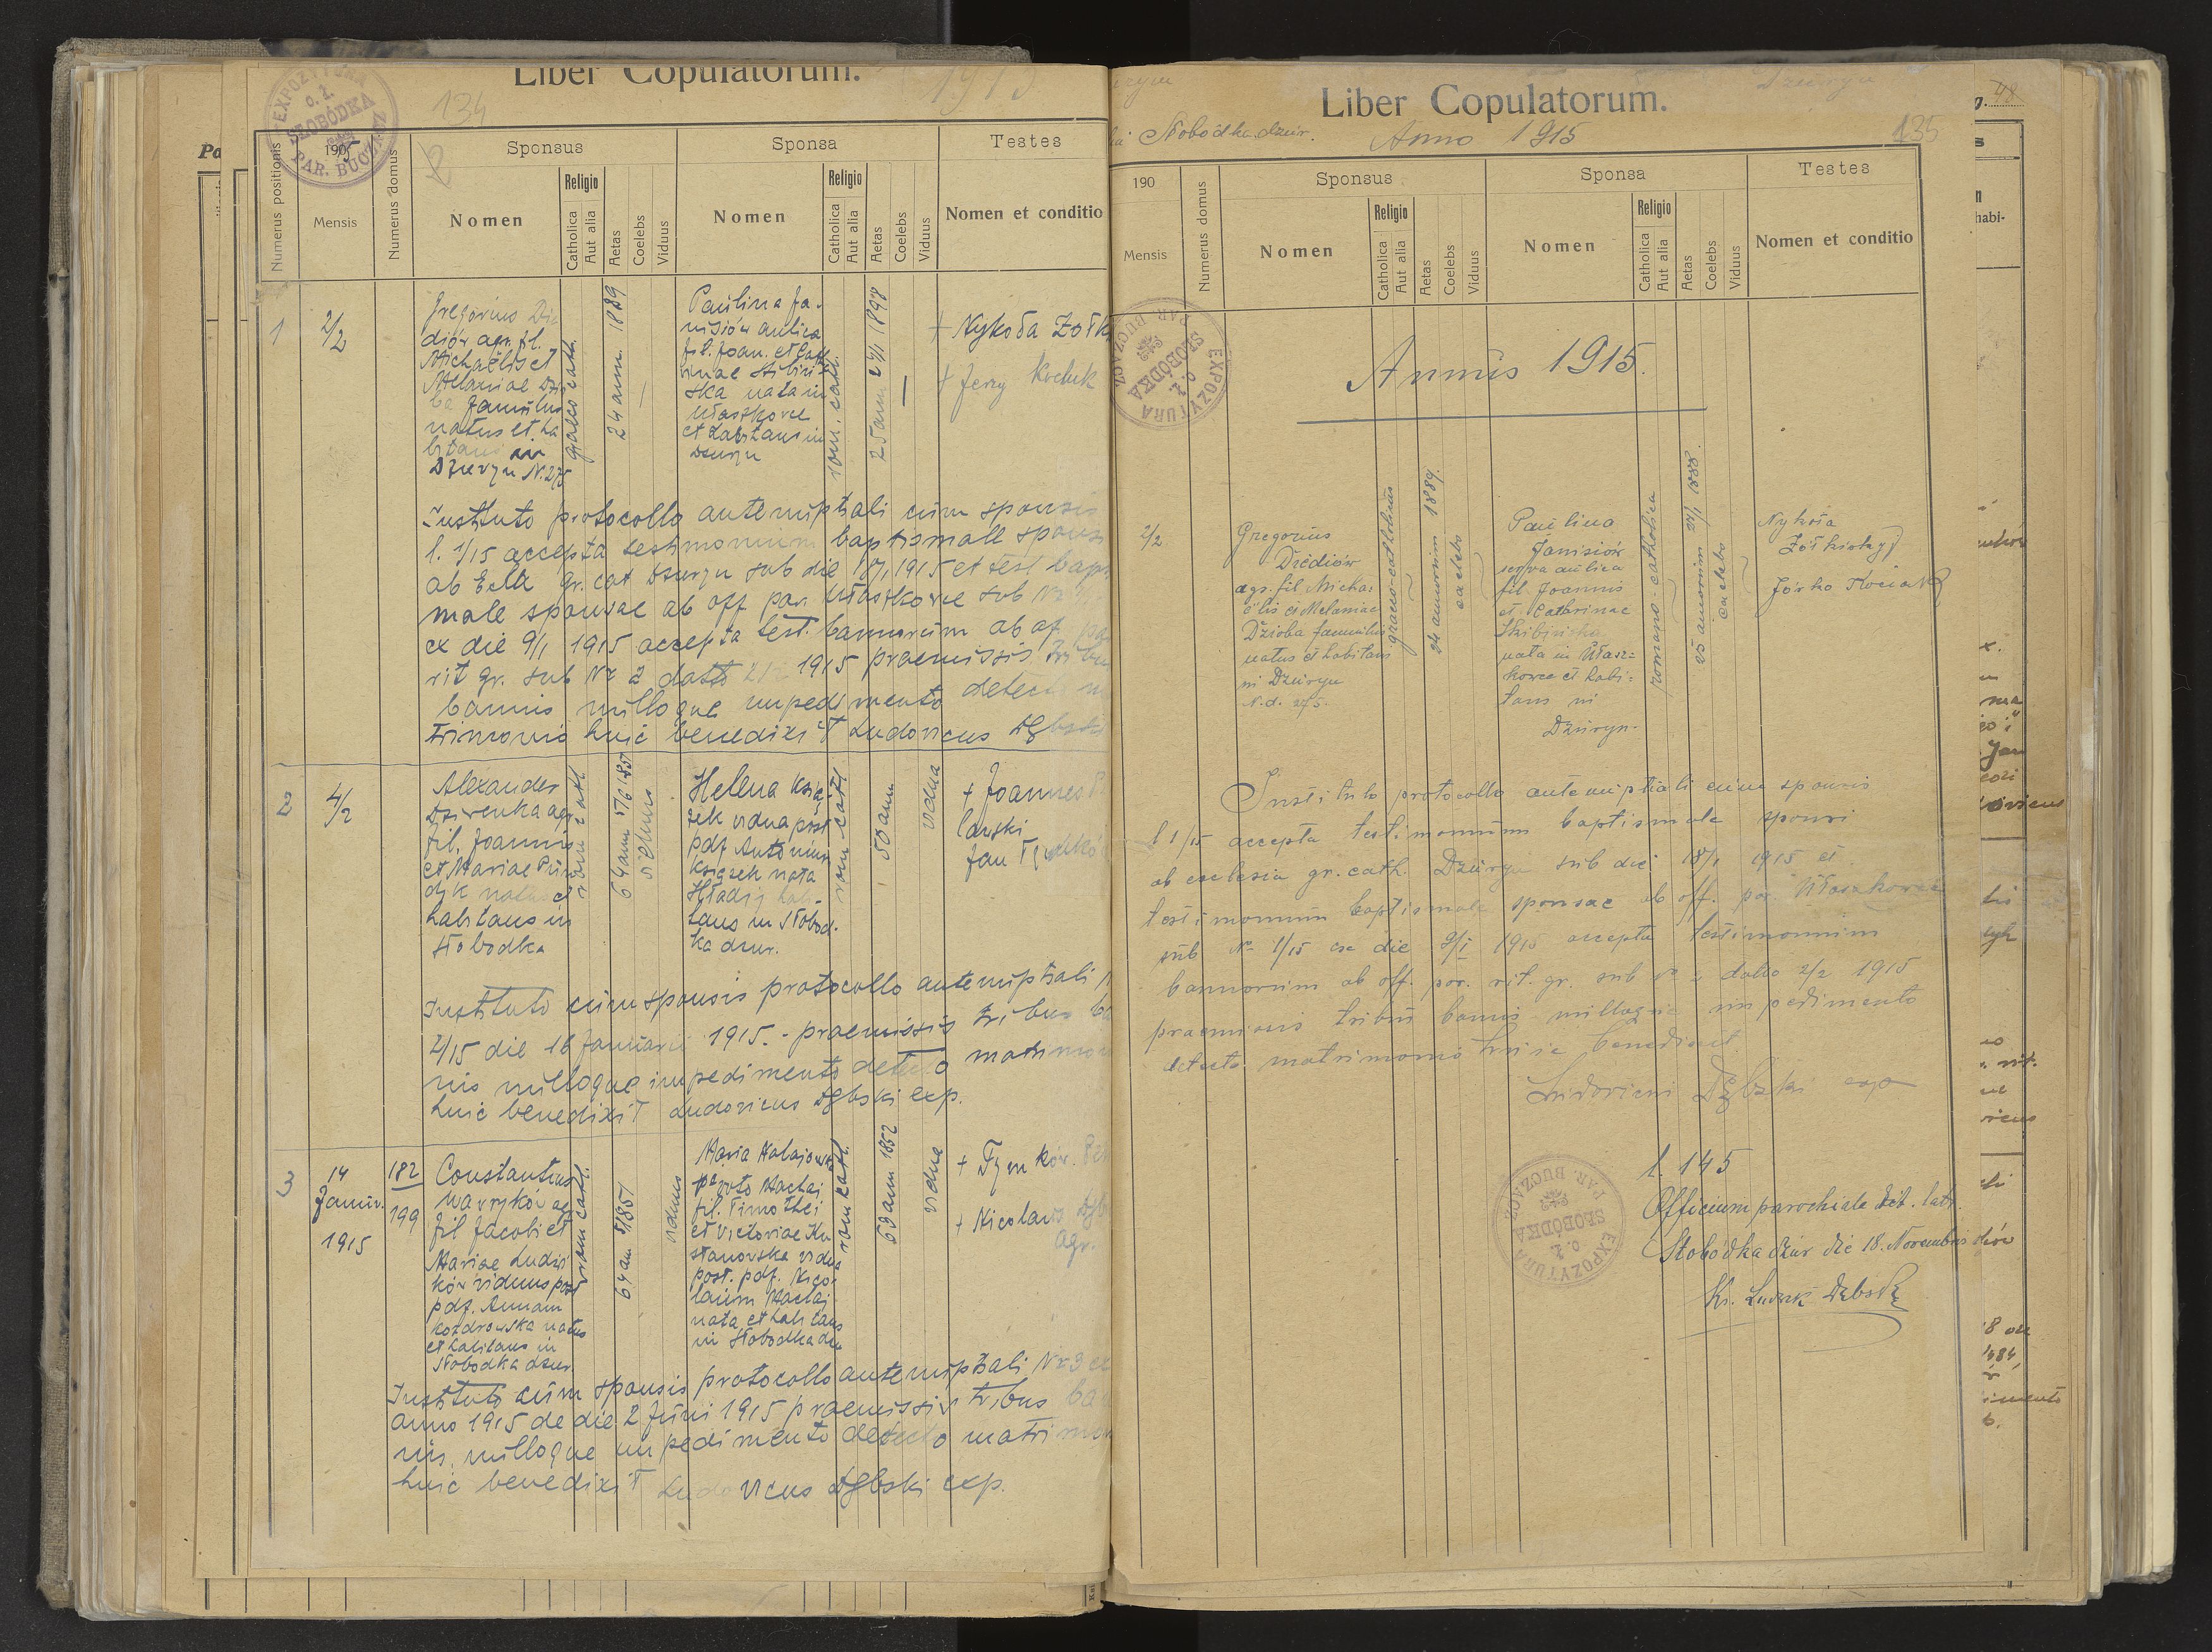 Liber Copulatorum.
134
1915
EXPOZYTURA
o. ł.
SŁOBÓDKA
PAR. BUCZACZ
Numerus positionis
1905
Mensis
Numerus domus
Sponsus
Nomen
Religio
Catholica
Aut alia
Aetas
Coelebs
Viduus
Sponsa
Nomen
Religio
Catholica
Aut alia
Aetas
Coelebs
Viduus
Testes
Nomen et conditio
1
2/2
Gregorius
diów agr. fil.
Michaelis et
Melaniae
famulus
natus et ha
bitans in
Dzuryn N. 275
graeco cath.
24 ann. 1889
Paulina Ja-
nisiów aulica
fil. Joan. et Cath
rinae Skibiń
ska nata in
Ułaszkowce
et habitans in
Dzuryn
rom. cath.
25 ann
+ Nykoła Żołk
+ Jerzy Kociuk
Instituto protocollo antenuptiali cum sponsis
l. 1/15 accepta testimonium baptismale sponsi
ab Eccl. gr. cat Dzuryn sub die 18/1 1915 et test bapt
male sponsae ab off par. Ułaszkowce sub Nr
ex die 9/1 1915 accepta test. bannorum ab of. pa
rit gr. sub Nr 2 datto 1915 praemissis tribus
bannis nulloque impedimento detecto m
trimonio huic benedixit Ludovicus Dębski
2
4/2
Alexander
Dzirenka agr
fil. Joannis
et Mariae
dyk natus et
habitans in
Słobodka
rom cath
64 ann 5/6 1851
viduus
Helena Ksią-
żek vidua post
pdf Antonium
Książek nata
Hładij habi-
tans in Słobod-
ka dzur.
rom cath
50 ann
vidua
+ Joannes
lański
Jan
Instituto cum sponsis protocollo antenuptiali
2/15 die 16 Januarii 1915.- praemissis tribus ba
nis nulloque impedimento detecto matrimo
huic benedixit Ludovicus Dębski exp.
3
14
Januar.
1915
182
199
Constantinus
Wawryków agr
fil Jacobi et
Mariae Ludwi
ków viduus post
pdf. Annam
Kozdrowska natus
et habitans in
Słobodka dzur.
rom cath.
64 an 1851
viduus
Maria
proto Maclaj
fil. Timothei
et Victoriae Ku
stanowska vidua
post. pdf. Nico-
laum Maclaj
nata et habitans
in Słobodka dzu
rom cath.
63 ann 1852
vidua
+ Tymków.
+ Nicolaus
agr.
Instituto cum sponsis protocollo antenuptiali Nr 3 ex
anno 1915 de die 2 Juni 1915 praemissis tribus ban
nis, nulloque impedimento detecto matrimon
huic benedixit Ludovicus Dębski exp.
Dzuryn
Liber Copulatorum.
Słobódka dzur.
Anno 1915
135
190
Mensis
Numerus domus
Sponsus
Nomen
Religio
Catholica
Aut alia
Aetas
Coelebs
Viduus
Sponsa
Nomen
Religio
Catholica
Aut alia
Aetas
Coelebs
Viduus
Testes
Nomen et conditio
EXPOZYTURA
o. ł.
SŁOBÓDKA
PAR. BUCZACZ
Annus 1915.
2/2
Gregorius
Diediów
agr. fil Micha-
ëlis et Melaniae
Dzioba famulus
natus et habitans
in Dzuryn
N. d. 275.
graeco-catholicus
24 annorum 1889.
caelebs
Paulina
Janisiów
serva aulica
fil. Joannis
et Catharinae
Skibińska
nata in Ułasz-
kowce et habi-
tans in
Dzuryn.
romano-catholica
25 annorum 24/1 1888
caelebs
Nykoła
Żółkiskyj
Jórko Kociuk
Instituto protocollo antenuptiali cum sponsis
l 1/15 accepta testimonium baptismale sponsi
ab ecclesia gr. cath. Dzuryn sub die 18/1 1915 et
testimonium baptismale sponsae ab off. par Ułaszkowce
sub N- 1/15 ex die 9/I 1915 accepta testimonium
bannorum ab off. par. rit. gr. sub N 2 datto 2/2 1915
praemissis tribus bannis nulloque impedimento
detecto matrimonio huic benedixit.
Ludovicus Dębski exp
l. 145
Officium parochiale rit. latr.
Słobódka dzur die 18. Novembris
Ks. Ludwik Dębski
EXPOZYTURA
o. ł.
SŁOBÓDKA
PAR. BUCZACZ
48
habi-